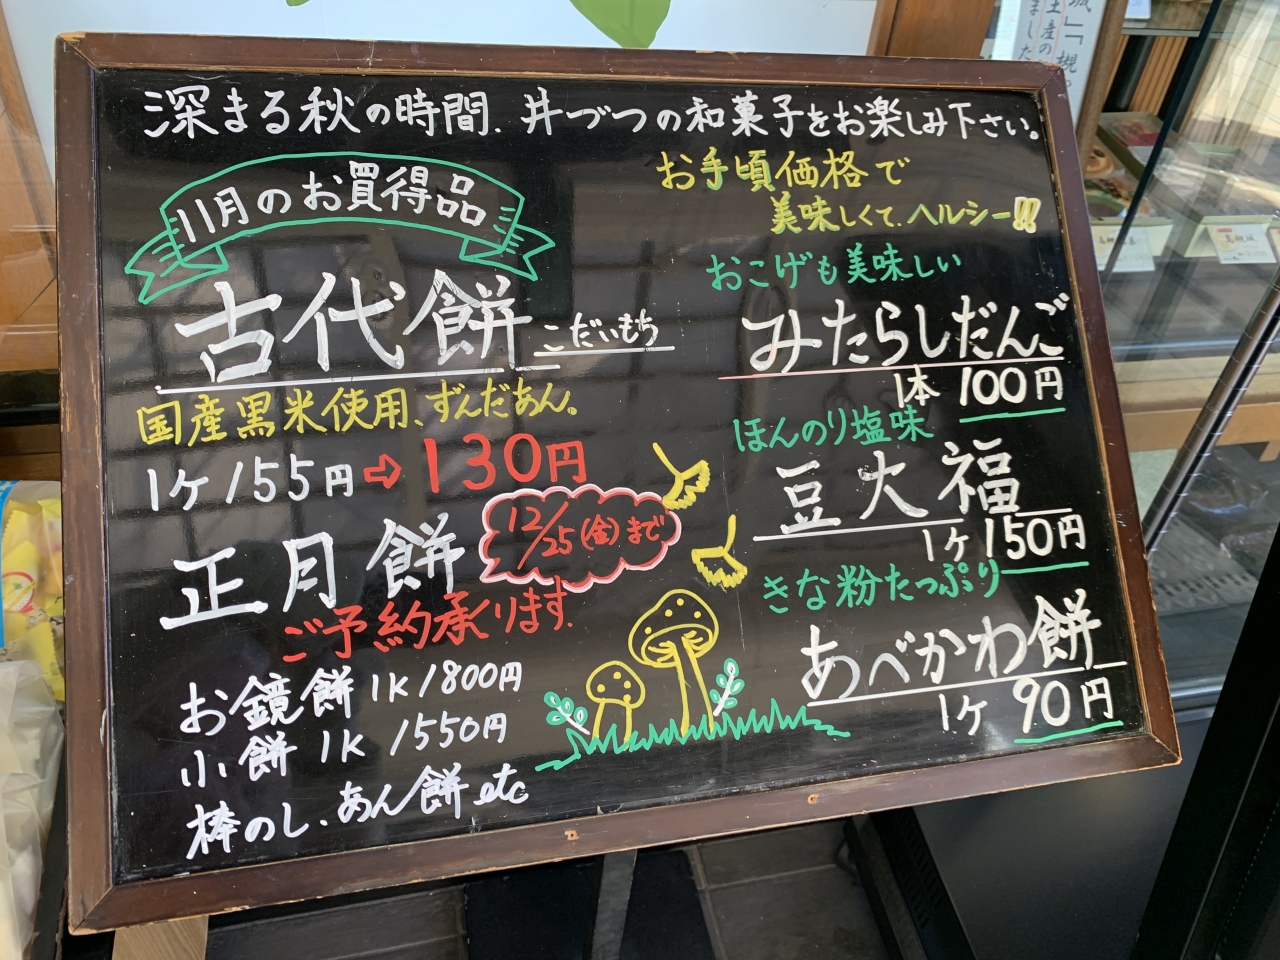 深まる秋の時間、井づつの和菓子をお楽しみ下さい。
11月のお買得品
古代餅 こだいもち
国産黒米使用、ずんだあん。
1ケ155円⇨130円
正月餅
12/25(金)まで
ご予約承ります。
お鏡餅 1K 1800円
小餅 1K 1550円
棒のし、あん餅etc
お手頃価格で
美味しくて、ヘルシー!!
おこげも美味しい
みたらしだんご
1本 100円
ほんのり塩味
豆大福
1ケ 150円
きな粉たっぷり
あべかわ餅
1ケ 90円